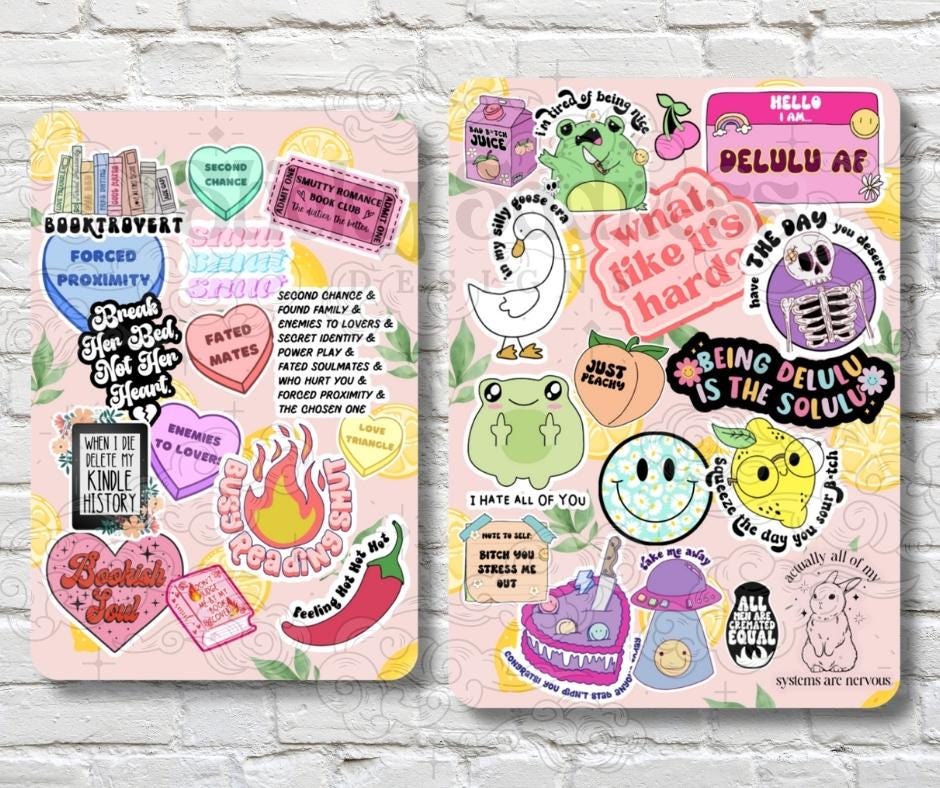 BOOKTROVERT
SECOND
CHANCE
ADMIT ONE
SMUTTY ROMANCE
BOOK CLUB
the dirtier the better
ADMIT ONE
FORCED
PROXIMITY
Smut
Smut
Break
Her Bed,
Not Her
Heart.
FATED
MATES
SECOND CHANCE &
FOUND FAMILY &
ENEMIES TO LOVERS &
SECRET IDENTITY &
POWER PLAY &
FATED SOULMATES &
WHO HURT YOU &
FORCED PROXIMITY &
THE CHOSEN ONE
WHEN I DIE
DELETE MY
KINDLE
HISTORY
ENEMIES
TO LOVERS
LOVE
TRIANGLE
BUSY
Reading
SMUT
Bookish
Soul
DON'T
JUDGE
ME BY MY
BOOK
Feeling Hot Hot Hot
BAD B*TCH
JUICE
i'm tired of being nice
HELLO
I AM...
DELULU AF
in my silly goose era
what,
like it's
hard?
have THE DAY you deserve
JUST
PEACHY
BEING DELULU
IS THE SOLULU
I HATE ALL OF YOU
Squeeze the day you sour b*tch
NOTE TO SELF:
BITCH YOU
STRESS ME
OUT
CONGRATS! YOU DIDN'T STAB ANYONE
take me away
ALL
MEN ARE
CREMATED
EQUAL
actually all of my
systems are nervous
DESIGN